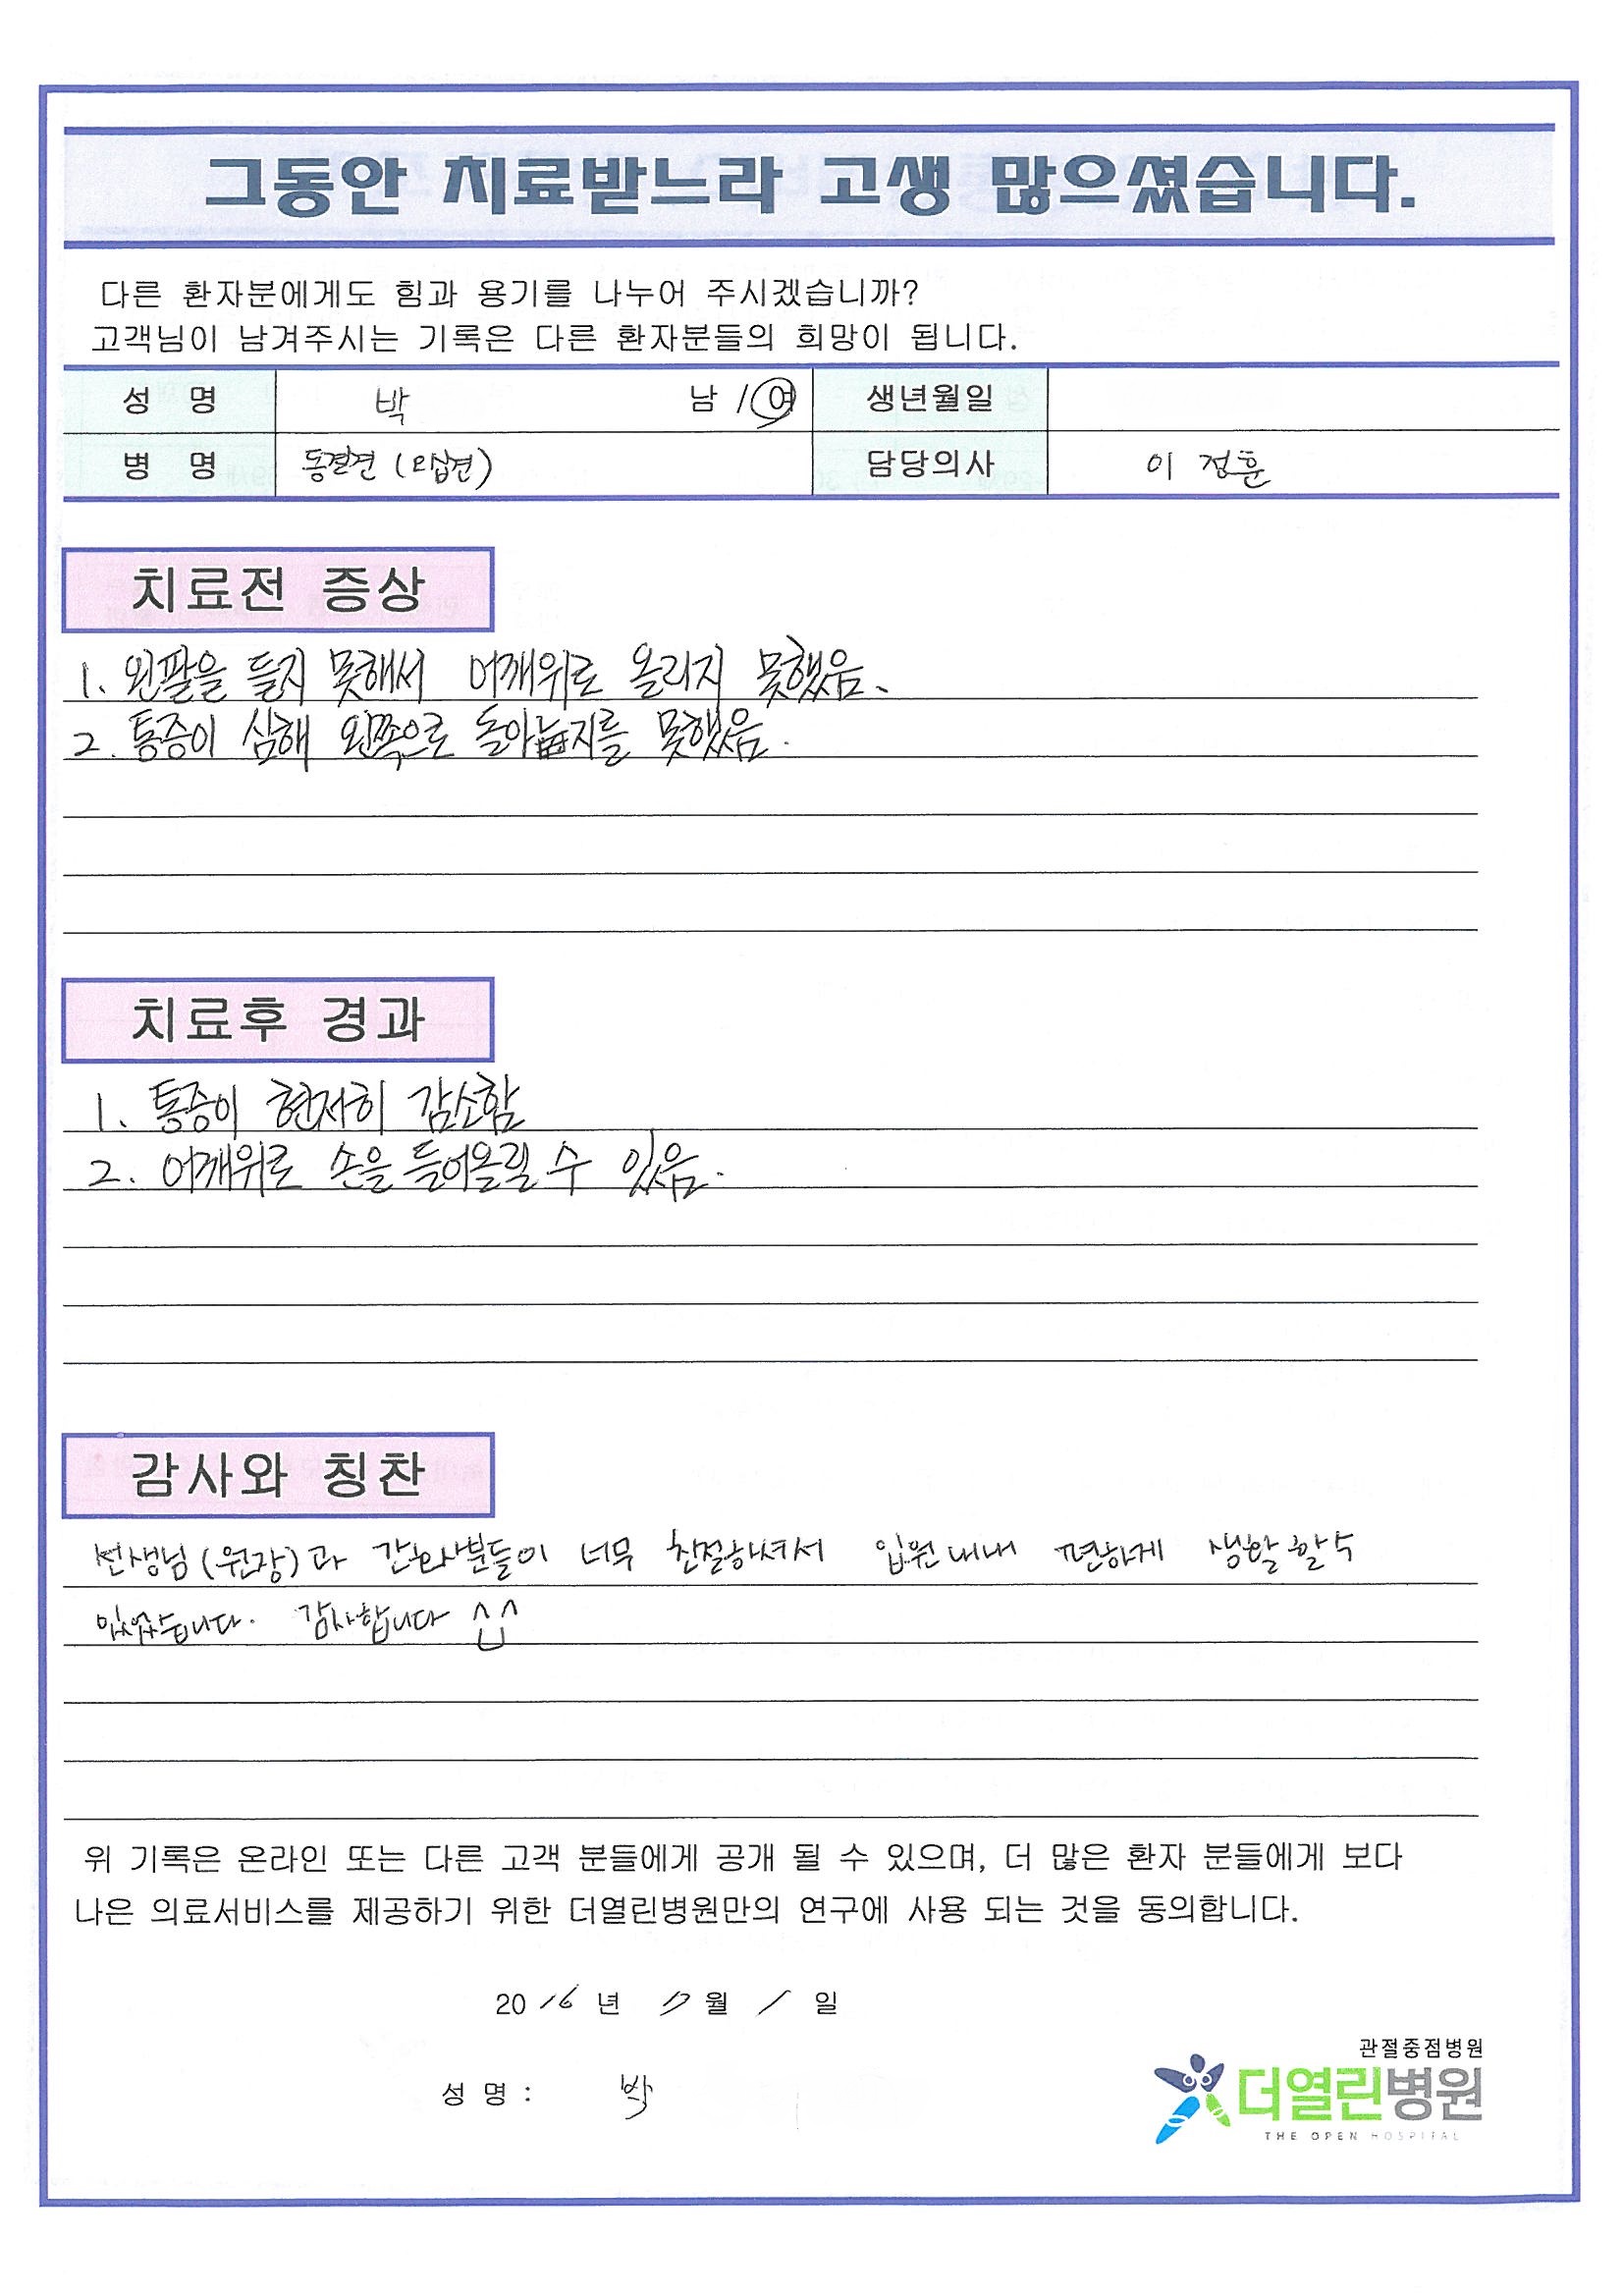 그동안 치료받느라 고생 많으셨습니다.
다른 환자분에게도 힘과 용기를 나누어 주시겠습니까?
고객님이 남겨주시는 기록은 다른 환자분들의 희망이 됩니다.
성 명 박 남 / 여 생년월일
병 명 동결견 (오십견) 담당의사 이 정훈
치료전 증상
1. 왼팔을 들지 못해서 어깨위로 올리지 못했음.
2. 통증이 심해 왼쪽으로 돌아눕지를 못했음.
치료후 경과
1. 통증이 현저히 감소함
2. 어깨위로 손을 들어올릴 수 있음.
감사와 칭찬
선생님(원장)과 간호사분들이 너무 친절하셔서 입원내내 편하게 생활할수
있었습니다. 감사합니다 ^^
위 기록은 온라인 또는 다른 고객 분들에게 공개 될 수 있으며, 더 많은 환자 분들에게 보다
나은 의료서비스를 제공하기 위한 더열린병원만의 연구에 사용 되는 것을 동의합니다.
2016 년 월 1 일
관절중점병원
성 명 : 박
더열린병원
THE OPEN HOSPITAL